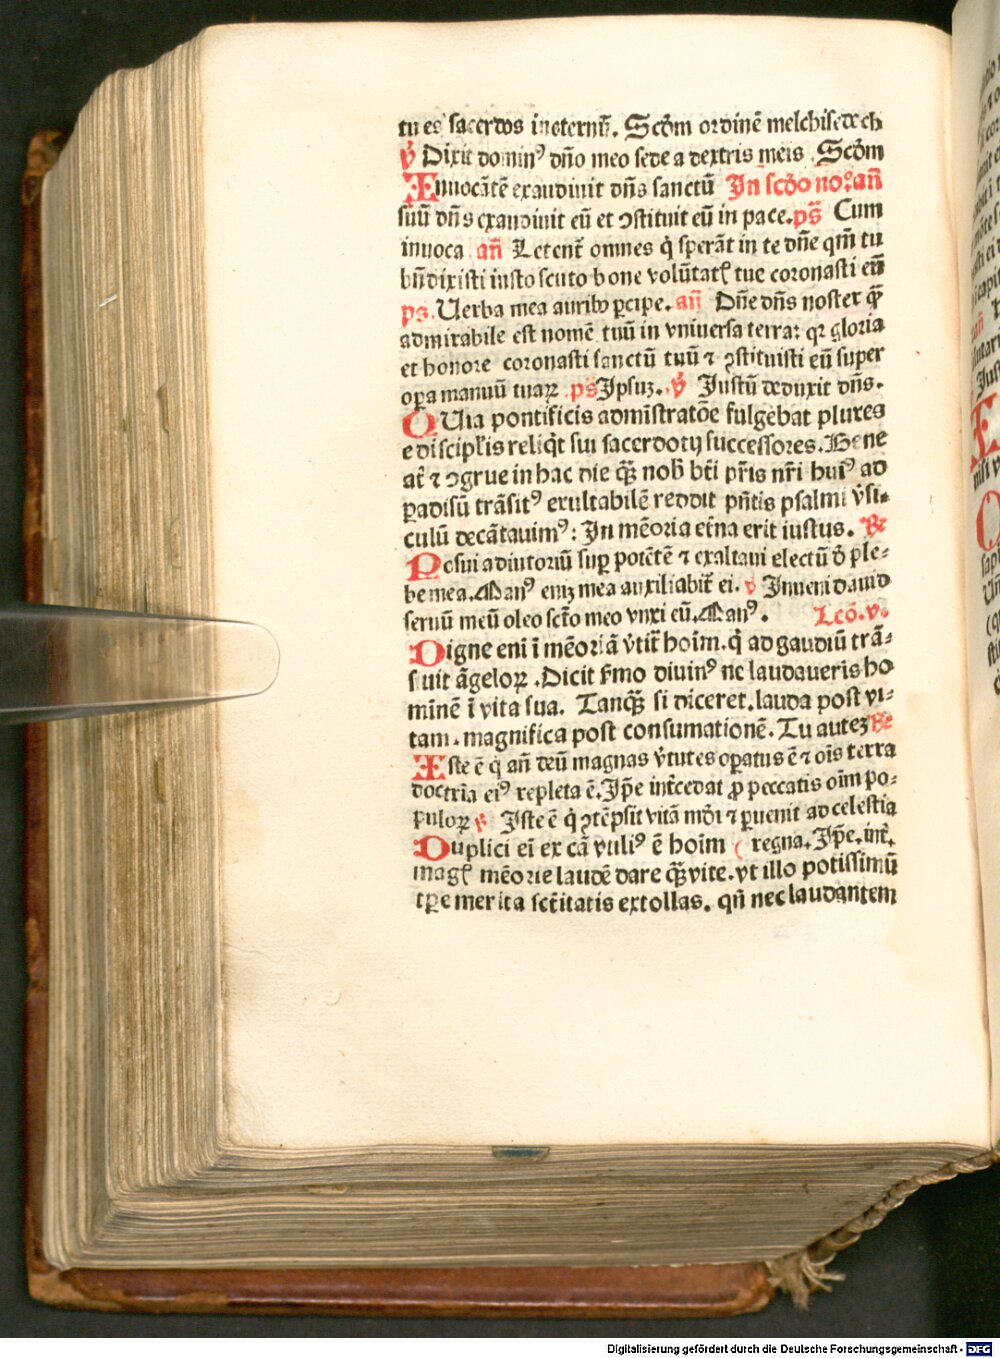 tu es sacerdos ineternū. Scōm ordinē melchisedech
℣ Dixit dominꝰ dño meo sede a dextris meis Scōm
Inuocātē exaudiuit dñs sanctū In scōo no⁊ añ
suū dñs exaudiuit eū et ↄstituit eū in pace. ps̄ Cum
inuoca añ Letent̄ omnes q̇ sperāt in te dñe qm̄ tu
bn̄dixisti iusto scuto bone volūtatꝭ tue coronasti eū
ps. Uerba mea auribꝫ ꝑcipe. añ Dñe dñs noster q̄ꝫ
admirabile est nomē tuū in vniuersa terra: qꝛ gloria
et honore coronasti sanctū tuū ⁊ ↄstituisti eū super
oꝑa manuū tuaꝝ ps̄ Ipsuꝫ. ℣ Iustū deduxit dñs.
QUia pontificis admīstratōe fulgebat plures
e discipl̄is reliq̇t sui sacerdotij successores. Bene
at̄ ⁊ ↄgrue in hac die q̄ꝫ nob̄ bt̄i pr̄is nr̄i huiꝰ ad
ꝑadisū trāsitꝰ exultabilē reddit pn̄tis psalmi v̓si⸗
culū decātauimꝰ: In mēoria et̄na erit iustus. ℟
Posui adiutoriū suꝑ potētē ⁊ exaltaui electū d̄ ple⸗
be mea. Manꝰ em̄ mea auxiliabit̄ ei. v Inueni dauid
seruū meū oleo sct̄o meo vnxi eū. Manꝰ. Lcō. v.
Digne eni ī mēoriā v̓tit̄ hoīm. q̇ ad gaudiū trā⸗
siuit āgeloꝝ. Dicit s̓mo diuinꝰ ne laudaueris ho
minē ī vita sua. Tanq̄ꝫ si diceret. lauda post vi⸗
tam. magnifica post consumationē. Tu auteꝫ ℟
Iste ē q̇ añ deū magnas v̓tutes oꝑatus ē ⁊ oīs terra
doctrīa eiꝰ repleta ē. Ip̄e int̄cedat ꝓ peccatis oīm po⸗
puloꝝ ℣ Iste ē q̇ ↄtēpsit vitā mūdi ⁊ ꝑuenit ad celestia
Duplici eī ex cā vtiliꝰ ē hoīm ( regna. Ip̄e. int̄.
magꝭ mēorie laudē dare q̄ꝫ vite. vt illo potissimū
tꝑe merita sct̄itatis extollas. qn̄ nec laudantem